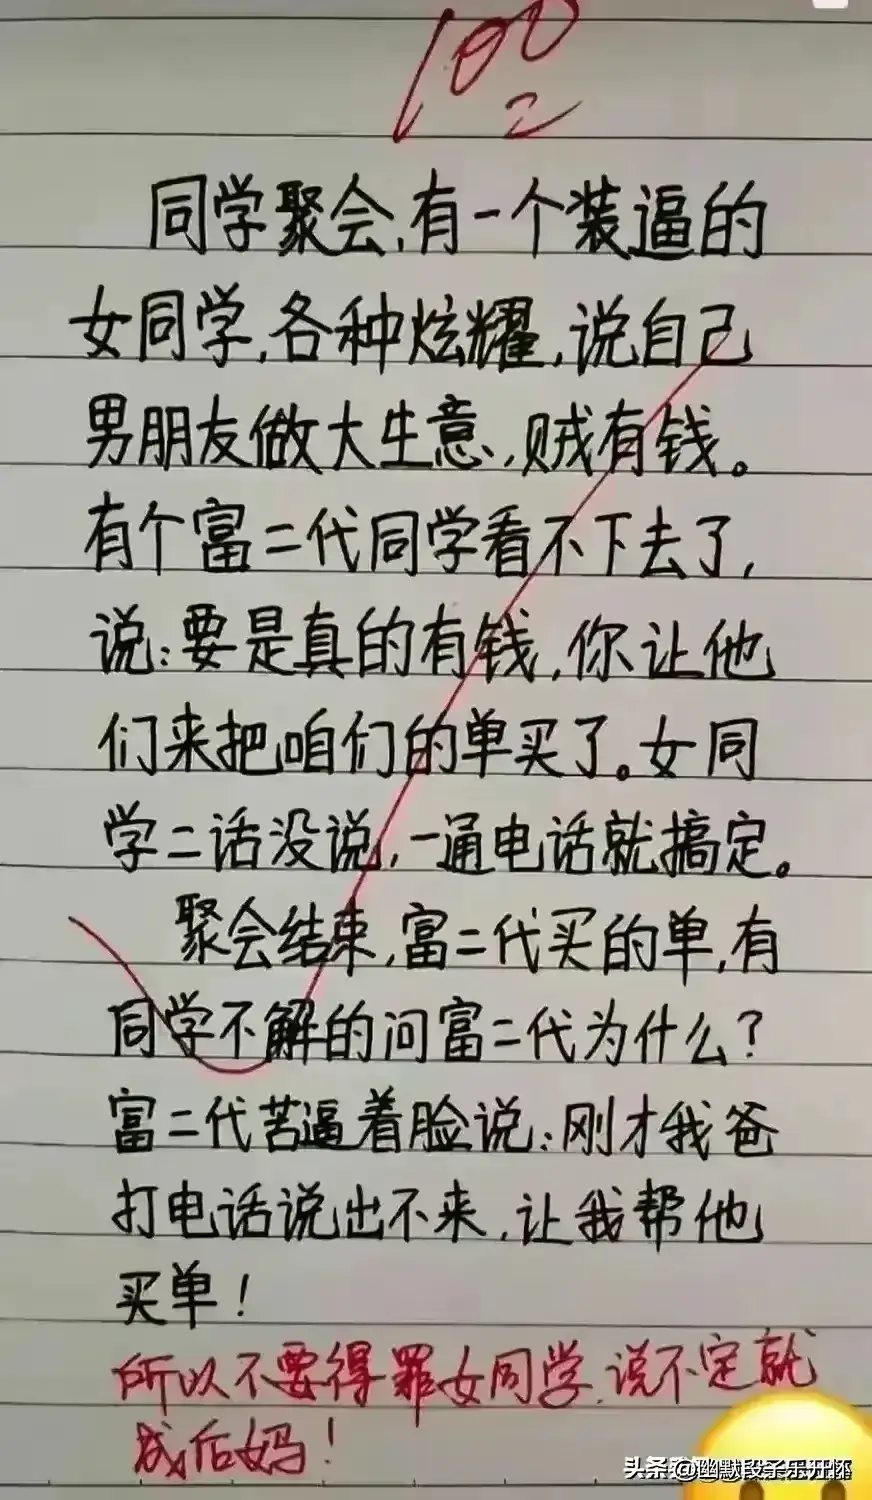 100
同学聚会,有一个装逼的
女同学,各种炫耀,说自己
男朋友做大生意,贼有钱。
有个富二代同学看不下去了,
说:要是真的有钱,你让他
们来把咱们的单买了。女同
学二话没说,一通电话就搞定。
聚会结束,富二代买的单,有
同学不解的问富二代为什么?
富二代苦逼着脸说:刚才我爸
打电话说出不来,让我帮他
买单!
所以不要得罪女同学,说不定就
成后妈!
头条 @幽默段子乐开怀